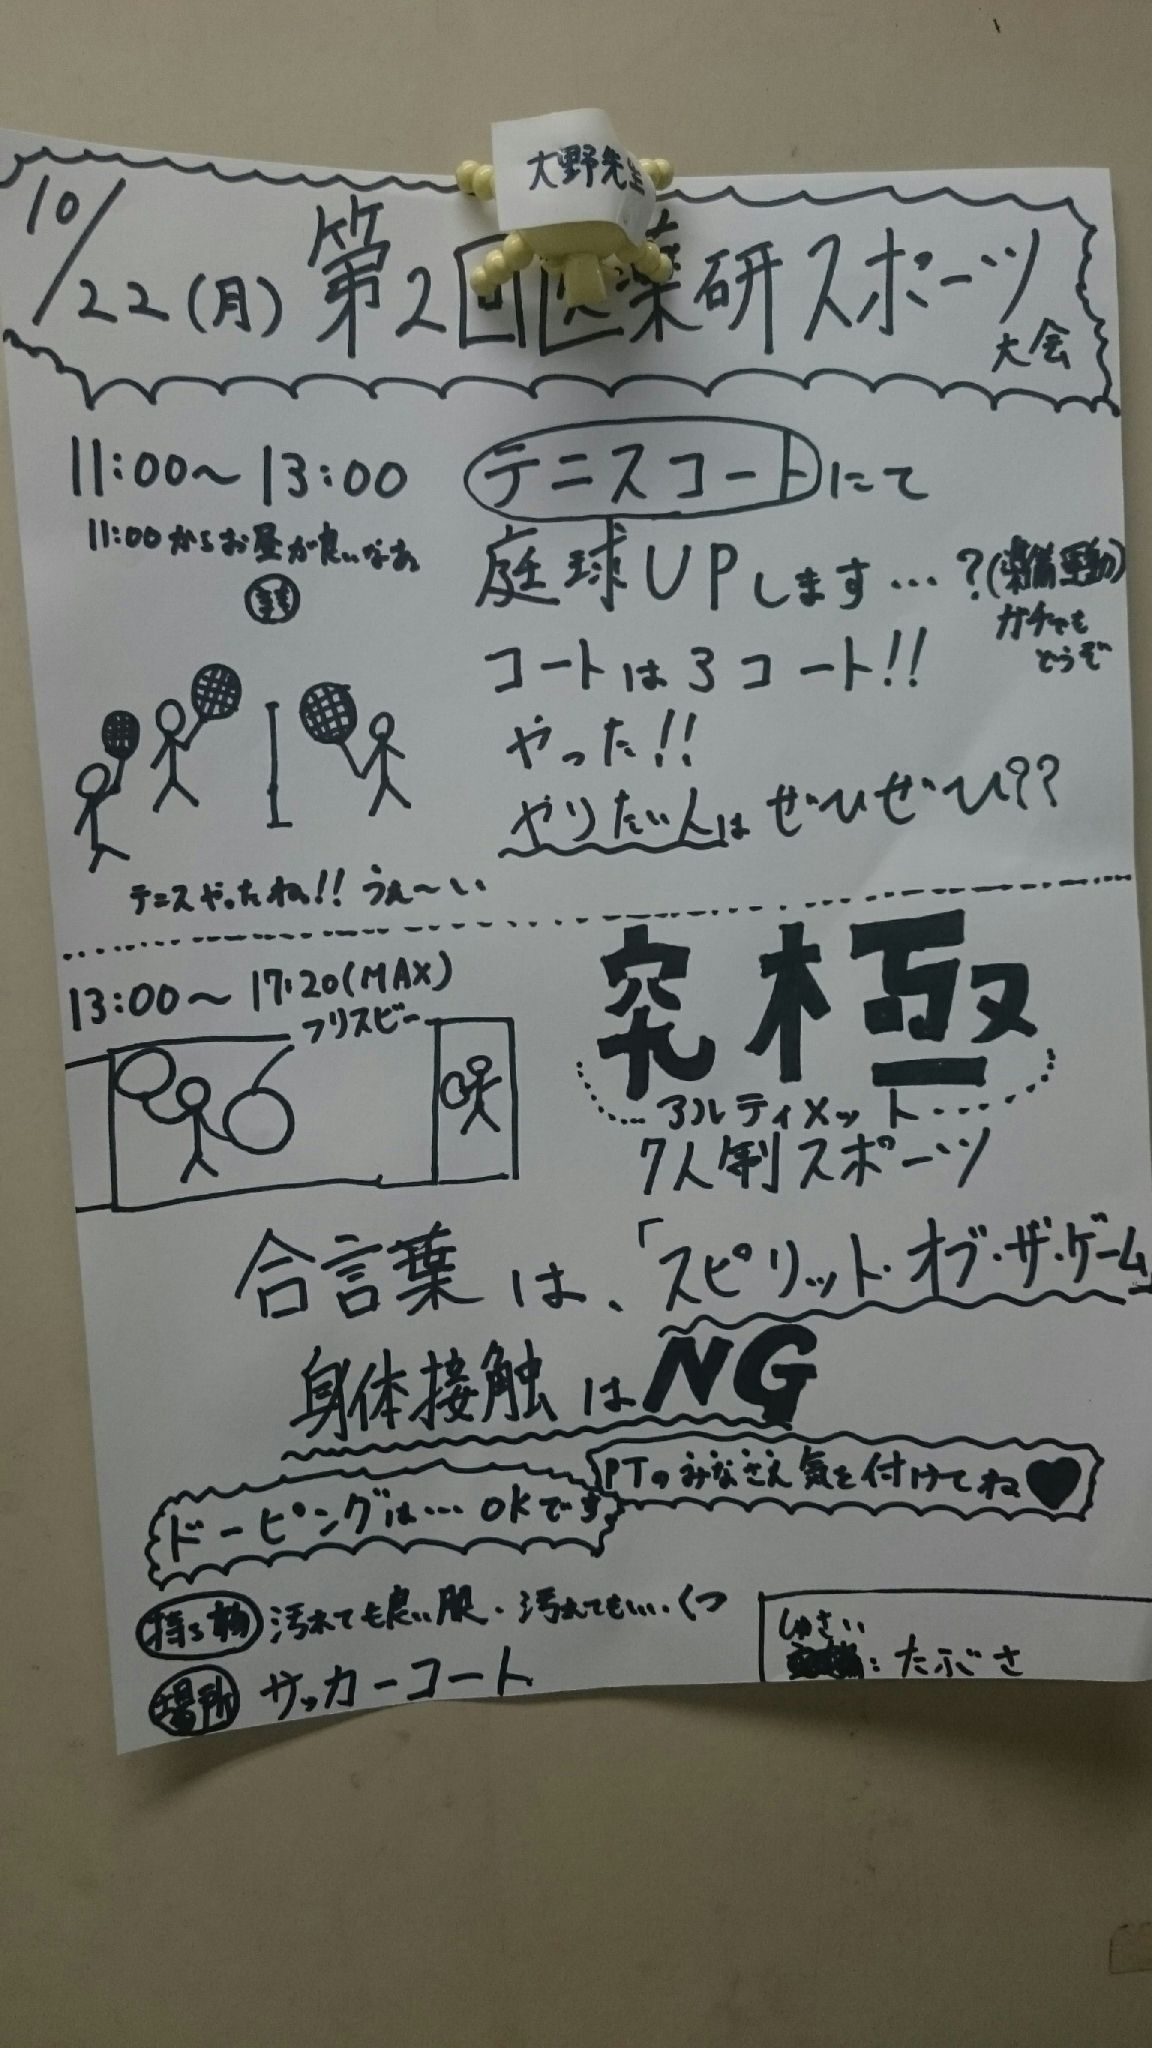 大野先生
10/22(月) 第2回医薬研スポーツ
大会
11:00〜13:00
11:00からお昼が良いなぁ
テニスコートにて
庭球UPします…?(準備運動)
ガチャも
どうぞ
コートは3コート!!
やった!!
やりたい人はぜひぜひ??
テニスやったね!! うぇ〜い
13:00〜17:20(MAX)
フリスビー
究極
アルティメット
7人制スポーツ
合言葉は、「スピリット・オブ・ザ・ゲーム」
身体接触はNG
PTのみなさん気を付けてね♥
ドーピングは…OKです
持ち物 汚れても良い服・汚れてもいい、くつ
場所 サッカーコート
しゅさい
:たぶさ